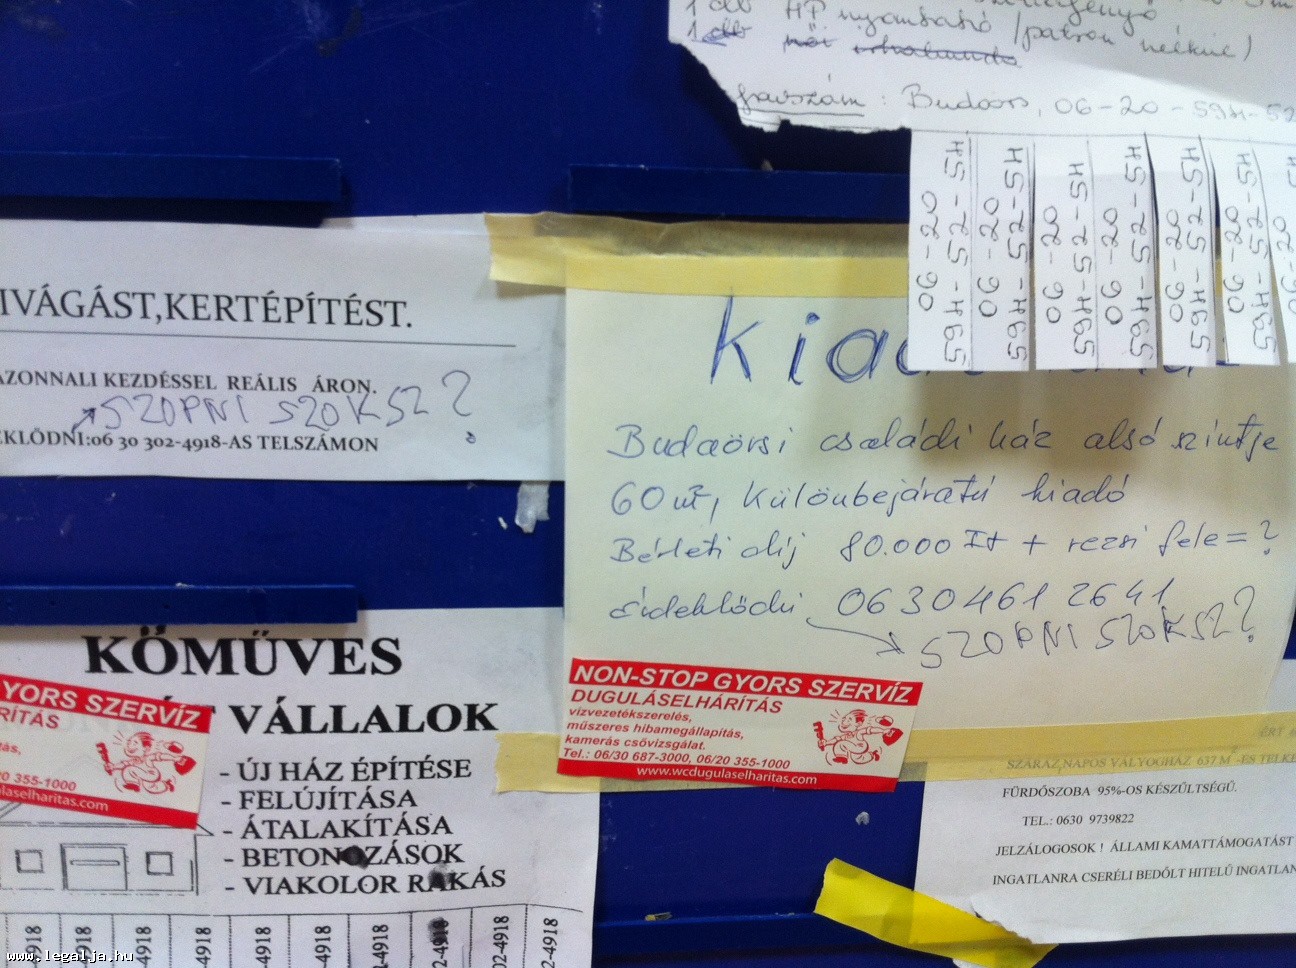 1 db HP nyomtató /patron nélkül)
1 db női
: Budaörs, 06-20-594-52
06-20
594-52-54
06-20
594-52-54
06-20
594-52-54
06-20
594-52-54
06-20
594-52-54
06-20
594-52-54
06-20
IVÁGÁST,KERTÉPÍTÉST.
AZONNALI KEZDÉSSEL REÁLIS ÁRON.
SZOPNI SZOKSZ?
EKLŐDNI:06 30 302-4918-AS TELSZÁMON
Budaörsi családi ház alsó szintje
60 m², Különbejáratú kiadó
Bérleti díj 80.000 Ft + rezsi fele = ?
érdeklődni 06304612641
SZOPNI SZOKSZ?
NON-STOP GYORS SZERVÍZ
DUGULÁSELHÁRÍTÁS
vízvezetékszerelés,
műszeres hibamegállapítás,
kamerás csővizsgálat.
Tel.: 06/30 687-3000, 06/20 355-1000
www.wcdugulaselharitas.com
KŐMŰVES
VÁLLALOK
- ÚJ HÁZ ÉPÍTÉSE
- FELÚJÍTÁSA
- ÁTALAKÍTÁSA
- BETONOZÁSOK
- VIAKOLOR RAKÁS
YORS SZERVÍZ
RÍTÁS
ás,
/20 355-1000
gulaselharitas.com
4918
4918
-4918
-4918
-4918
-4918
-4918
2-4918
02-4918
2-4918
SZÁRAZ,NAPOS VÁLYOGHÁZ 637 M² -ES TELKE
FÜRDŐSZOBA 95%-OS KÉSZÜLTSÉGŰ.
TEL.: 0630 9739822
JELZÁLOGOSOK ! ÁLLAMI KAMATTÁMOGATÁST
INGATLANRA CSERÉLI BEDŐLT HITELŰ INGATLAN
www.legalja.hu